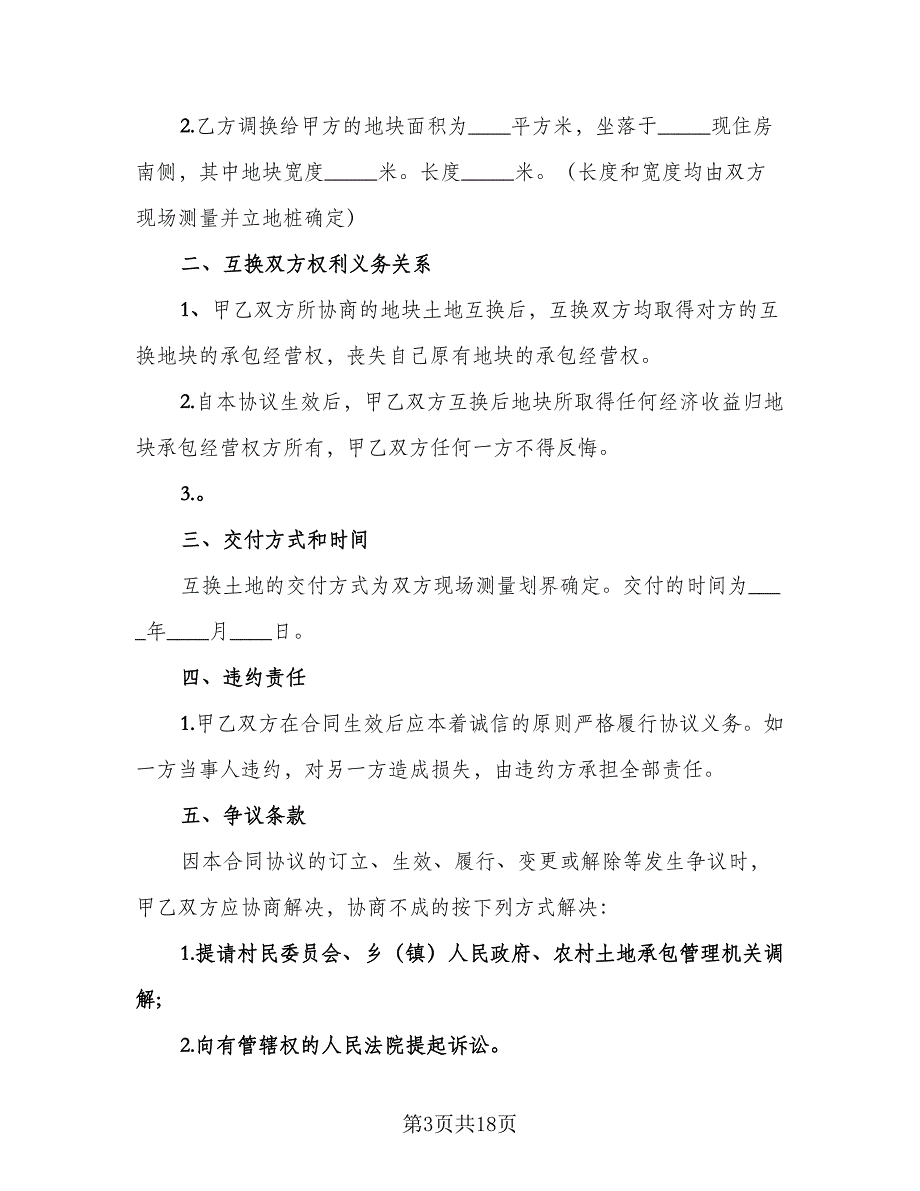 2.乙方调换给甲方的地块面积为____平方米，坐落于_____现住房
南侧，其中地块宽度_____米。长度_____米。（长度和宽度均由双方
现场测量并立地桩确定）
二、互换双方权利义务关系
1、甲乙双方所协商的地块土地互换后，互换双方均取得对方的互
换地块的承包经营权，丧失自己原有地块的承包经营权。
2.自本协议生效后，甲乙双方互换后地块所取得任何经济收益归地
块承包经营权方所有，甲乙双方任何一方不得反悔。
3.。
三、交付方式和时间
互换土地的交付方式为双方现场测量划界确定。交付的时间为___
_年____月____日。
四、违约责任
1.甲乙双方在合同生效后应本着诚信的原则严格履行协议义务。如
一方当事人违约，对另一方造成损失，由违约方承担全部责任。
五、争议条款
因本合同协议的订立、生效、履行、变更或解除等发生争议时，
甲乙双方应协商解决，协商不成的按下列方式解决：
1.提请村民委员会、乡（镇）人民政府、农村土地承包管理机关调
解;
2.向有管辖权的人民法院提起诉讼。
第3页共18页